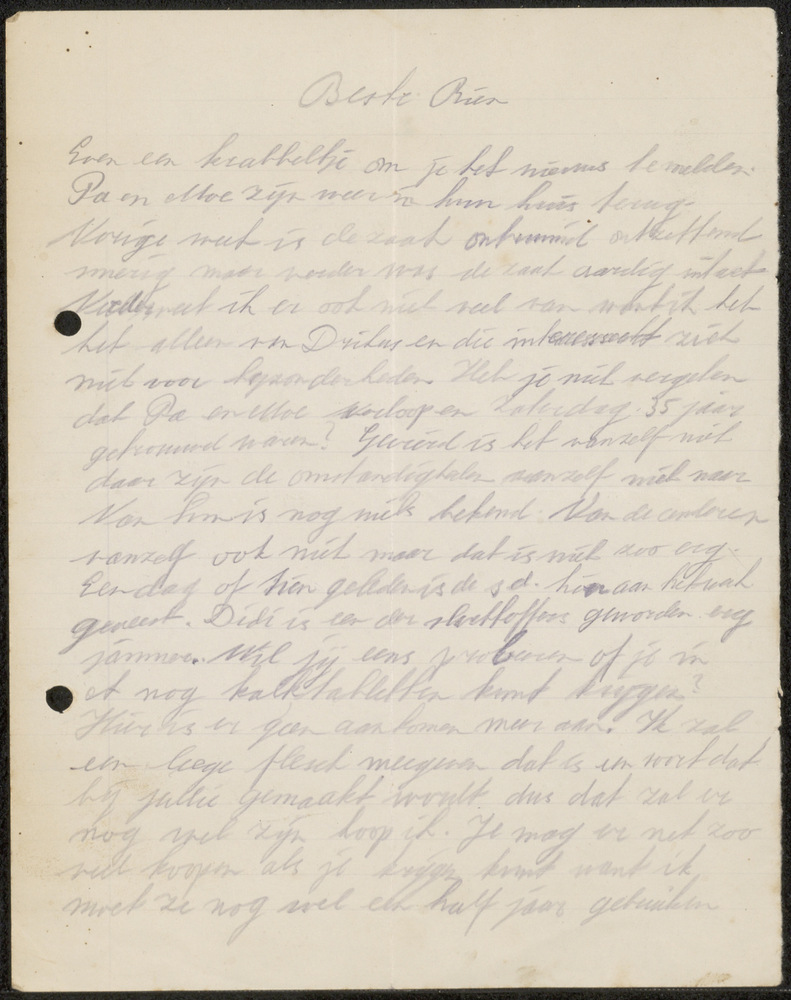 Beste Rien
Even een krabbeltje om je het nieuws te melden.
Pa en Moe zijn weer in hun huis terug.
Vorige week is de zaak ontruimd ontzettend
smerig maar verder was de zaak aardig intact
Verder weet ik er ook niet veel van want ik heb
het alleen van Dritus en die interesseert zich
niet voor byzonderheden. Heb je niet vergeten
dat Pa en Moe verloopen Zaterdag 35 jaar
getrouwd waren? Gevierd is het vanzelf niet
daar zijn de omstandigheden vanzelf niet naar
Van hem is nog niets bekend. Van de anderen
vanzelf ook niet maar dat is niet zoo erg.
Een dag of tien geleden is de s.d. hier aan het werk
geweest. Didi is een der slachtoffers geworden erg
jammer. Wil jij eens probeeren of je in
et nog kalktabletten kunt krygen?
Hier is er geen aankomen meer aan. Ik zal
een leege flesch meegeven dat is een soort dat
by jullie gemaakt wordt dus dat zal er
nog wel zijn hoop ik. Je mag er net zoo
veel koopen als je krygen kunt want ik
moet ze nog wel een half jaar gebruiken